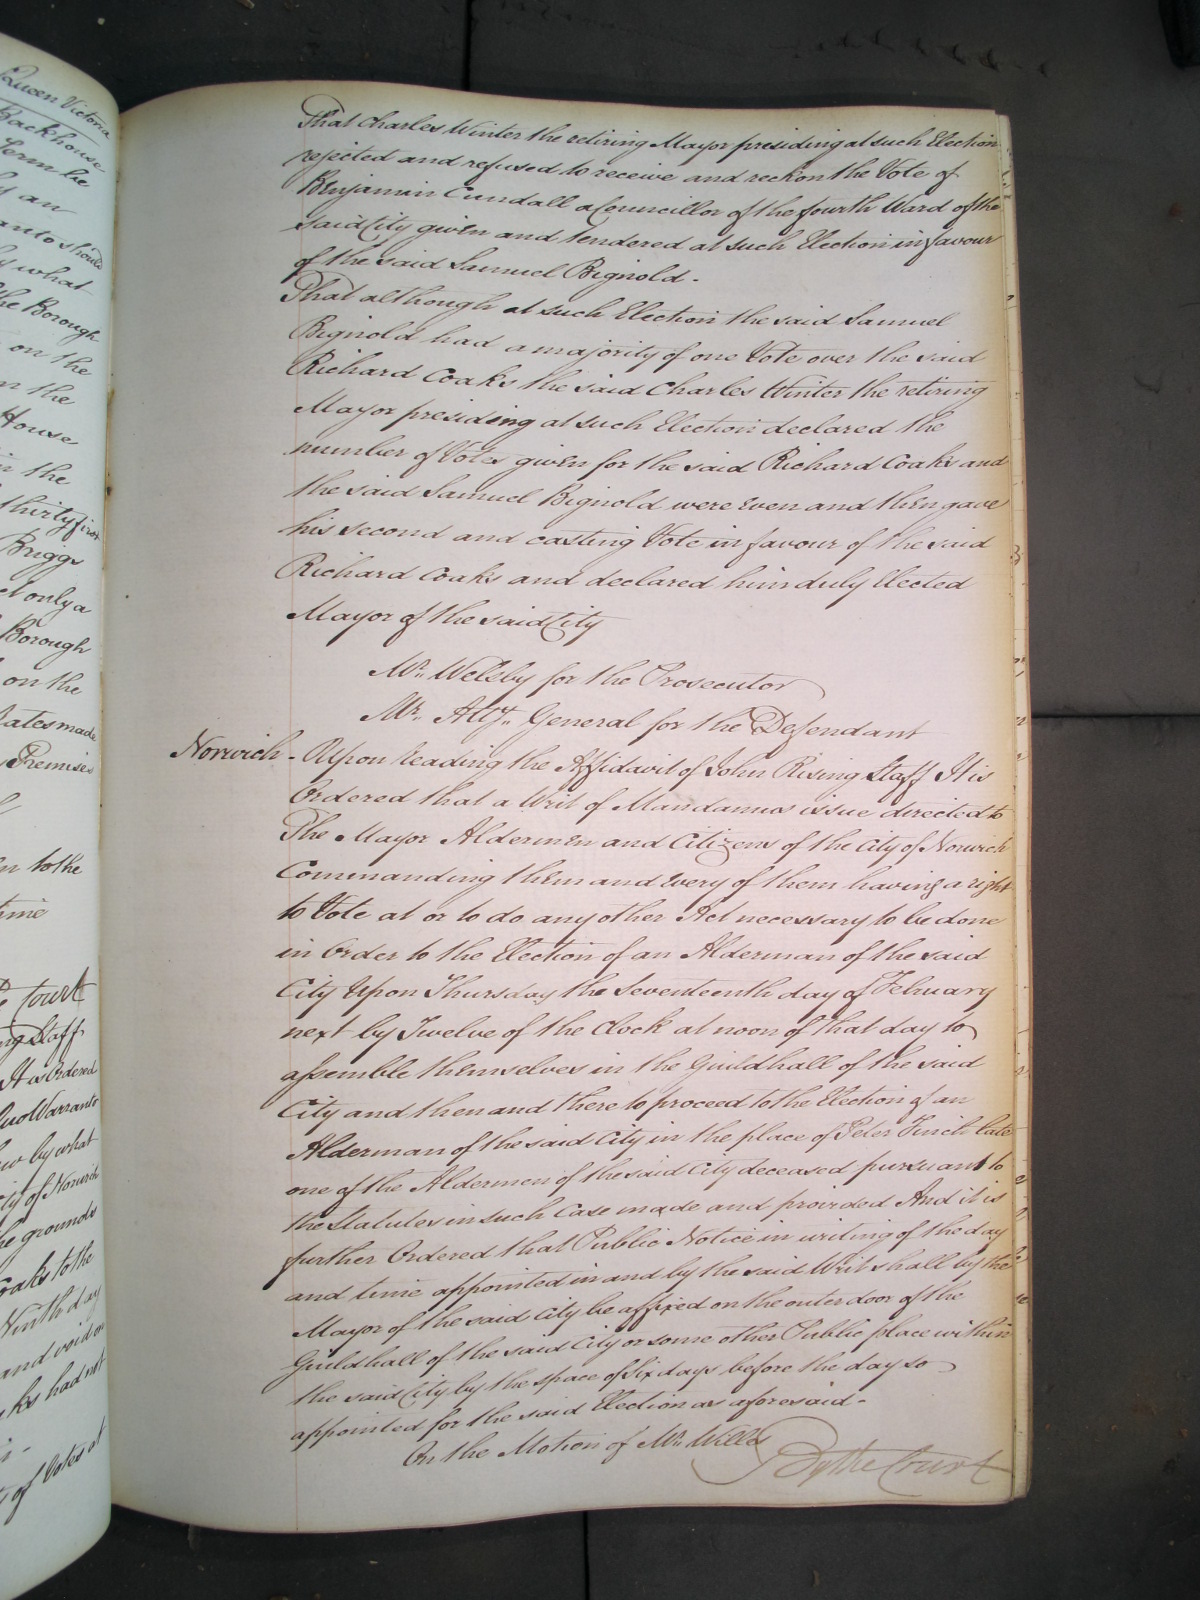 Queen Victoria
Backhouse
Term he
an
what
the Borough
on the
in the
House
in the
thirtyfirst
Briggs
only a
Borough
on the
made
Premises
to the
time
Court
Staff
It is Ordered
Quo Warranto
by what
City of Norwich
the grounds
Coaks to the
Ninth day
and void on
had not
of Votes at
That Charles Winter the retiring Mayor presiding at such Election
rejected and refused to receive and reckon the Vote of
Benjamin Cundall a Councillor of the fourth Ward of the
said City given and tendered at such Election in favour
of the said Samuel Bignold -
That although at such Election the said Samuel
Bignold had a majority of one Vote over the said
Richard Coaks the said Charles Winter the retiring
Mayor presiding at such Election declared the
number of Votes given for the said Richard Coaks and
the said Samuel Bignold were even and then gave
his second and casting Vote in favour of the said
Richard Coaks and declared him duly Elected
Mayor of the said City
Mr. Welsby for the Prosecutor
Mr. Atty. General for the Defendant
Norwich - Upon reading the Affidavit of John Rising Staff It is
Ordered that a Writ of Mandamus issue directed to
The Mayor Aldermen and Citizens of the City of Norwich
Commanding them and every of them having a right
to Vote at or to do any other Act necessary to be done
in Order to the Election of an Alderman of the said
City Upon Thursday the Seventeenth day of February
next by Twelve of the Clock at noon of that day to
assemble themselves in the Guildhall of the said
City and then and there to proceed to the Election of an
Alderman of the said City in the place of Peter Finch late
one of the Aldermen of the said City deceased pursuant to
the Statutes in such Case made and provided And it is
further Ordered that Public Notice in writing of the day
and time appointed in and by the said Writ shall by the
Mayor of the said City be affixed on the outer door of the
Guildhall of the said City or some other Public place within
the said City by the space of Six days before the day so
appointed for the said Election as aforesaid -
On the Motion of Mr. Wells
By the Court